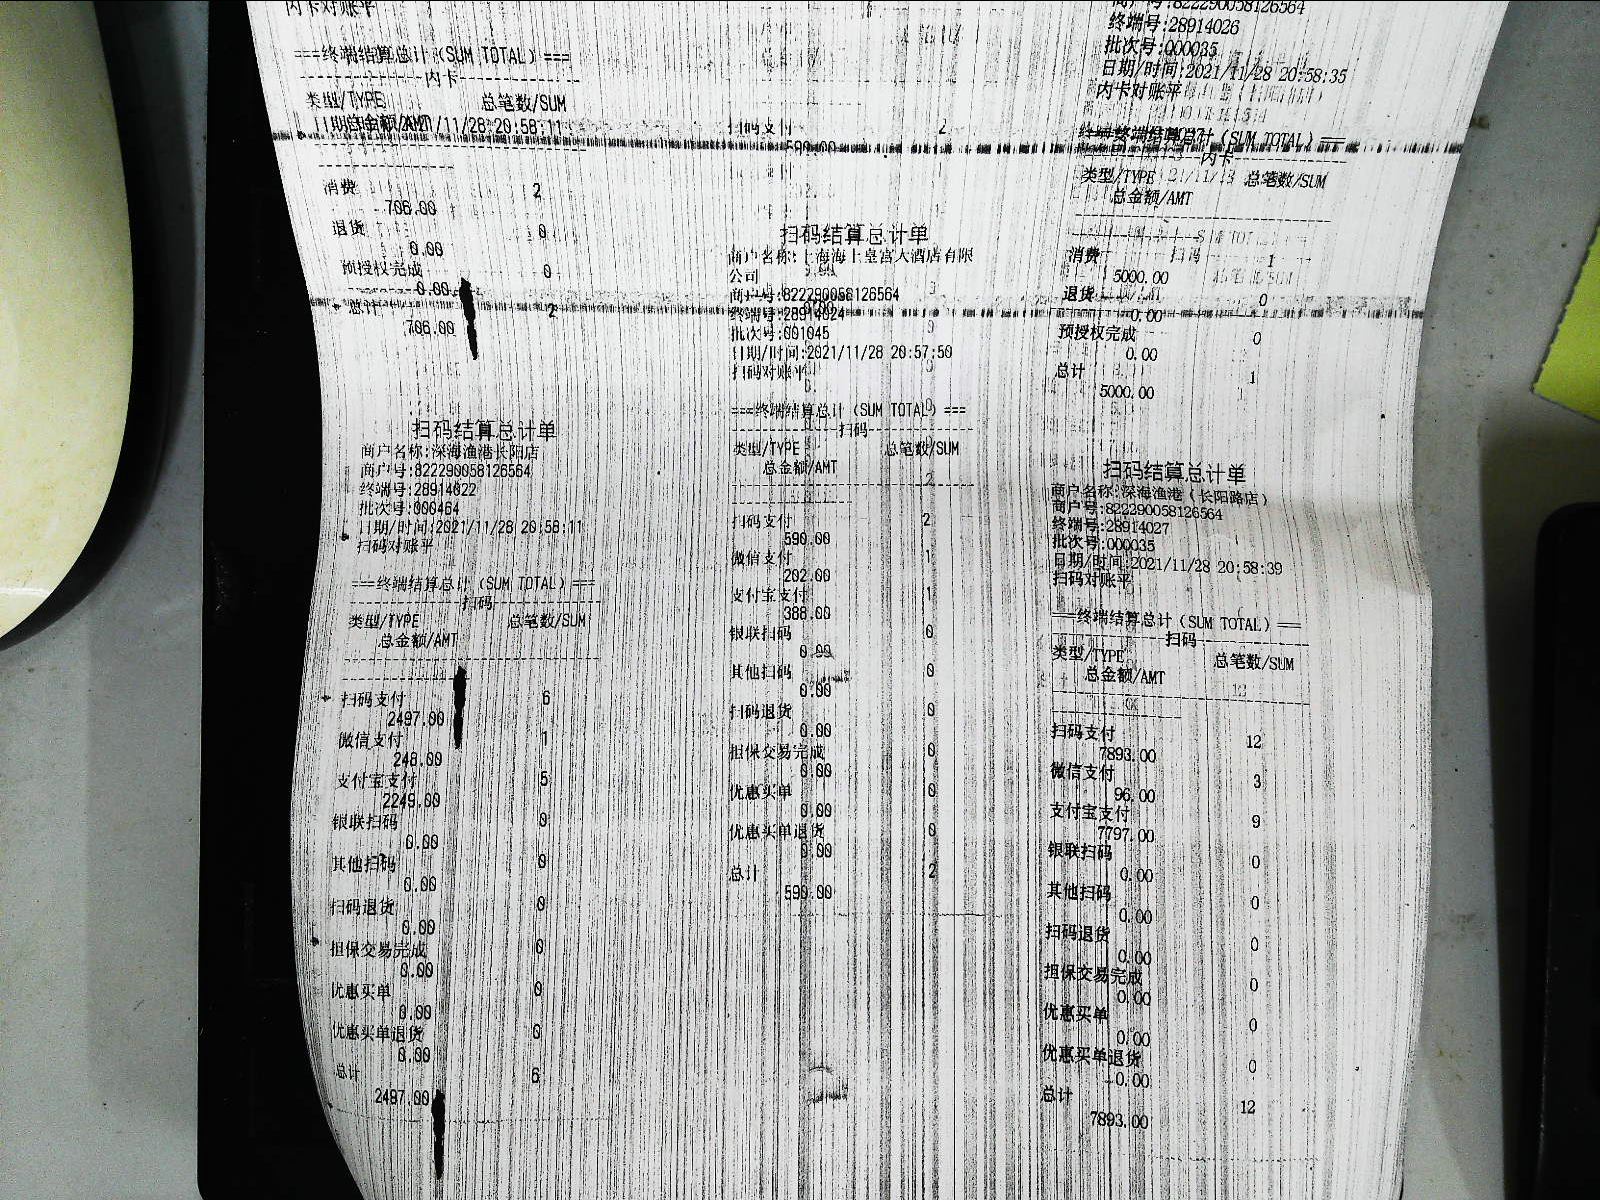 内卡对账平
===终端结算总计(SUM TOTAL)===
内卡
类型/TYPE 总笔数/SUM
总金额/AMT
消费 2
706.00
退货 0
0.00
预授权完成 0
0.00
总计 2
706.00
扫码结算总计单
商户名称:深海渔港长阳店
商户号:822290058126564
终端号:28914022
批次号:000464
日期/时间:2021/11/28 20:58:11
扫码对账平
===终端结算总计(SUM TOTAL)===
扫码
类型/TYPE 总笔数/SUM
总金额/AMT
扫码支付 6
2497.00
微信支付 1
248.00
支付宝支付 5
2249.00
银联扫码 0
0.00
其他扫码 0
0.00
扫码退货 0
0.00
担保交易完成 0
0.00
优惠买单 0
0.00
优惠买单退货 0
0.00
总计 6
2497.00
扫码支付 2
590.00
扫码结算总计单
商户名称:上海海上皇宫大酒店有限
公司
商户号:822290058126564
终端号:28914024
批次号:001045
日期/时间:2021/11/28 20:57:50
扫码对账平
===终端结算总计(SUM TOTAL)===
扫码
类型/TYPE 总笔数/SUM
总金额/AMT
扫码支付 2
590.00
微信支付 1
202.00
支付宝支付 1
388.00
银联扫码 0
0.00
其他扫码 0
0.00
扫码退货 0
0.00
担保交易完成 0
0.00
优惠买单 0
0.00
优惠买单退货 0
0.00
总计 2
590.00
商户号:822290058126564
终端号:28914026
批次号:000035
日期/时间:2021/11/28 20:58:35
内卡对账平
===终端结算总计(SUM TOTAL)===
内卡
类型/TYPE 总笔数/SUM
总金额/AMT
消费 1
5000.00
退货 0
0.00
预授权完成 0
0.00
总计 1
5000.00
扫码结算总计单
商户名称:深海渔港(长阳路店)
商户号:822290058126564
终端号:28914027
批次号:000035
日期/时间:2021/11/28 20:58:39
扫码对账平
===终端结算总计(SUM TOTAL)===
扫码
类型/TYPE 总笔数/SUM
总金额/AMT
扫码支付 12
7893.00
微信支付 3
96.00
支付宝支付 9
7797.00
银联扫码 0
0.00
其他扫码 0
0.00
扫码退货 0
0.00
担保交易完成 0
0.00
优惠买单 0
0.00
优惠买单退货 0
0.00
总计 12
7893.00